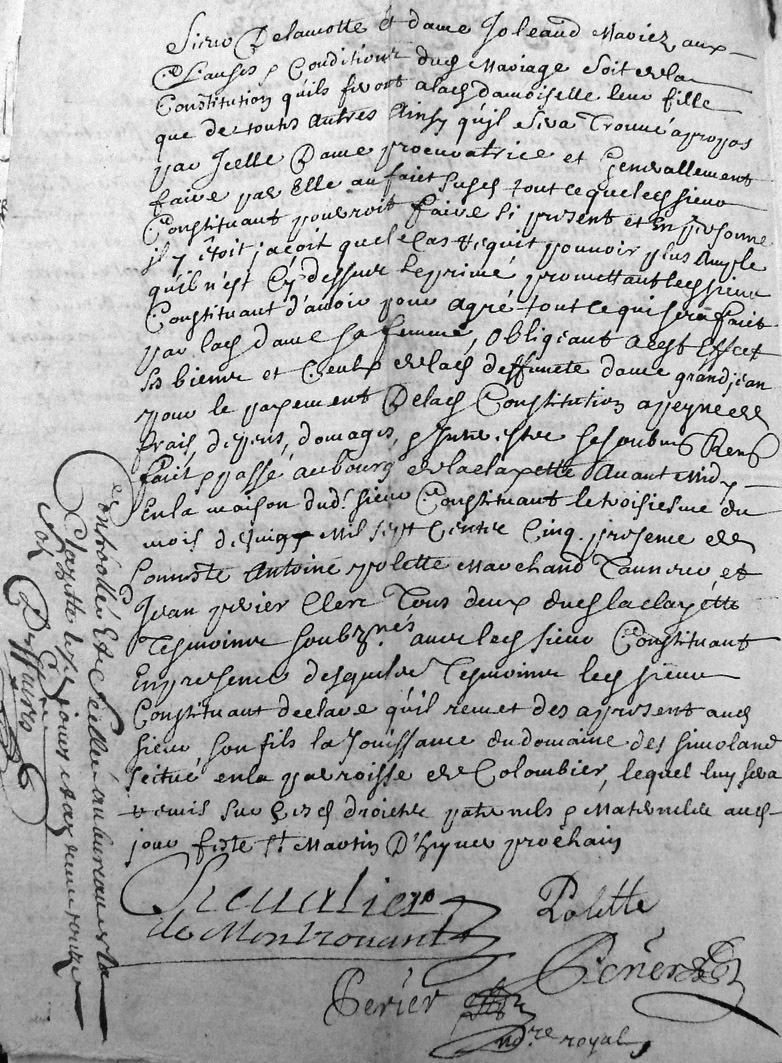 Sieur Delamotte et dame Joleaud Mariez aux
Clauses & Conditions dud Mariage Soit de la
Constitution quils feront a lad damoiselle leur fille
que de touttes autres Ainsy quil Sera Trouvé apropos
par Icelle Dame procuratrice et Generallement
faire par Elle au fait Susd tout ce que led sieur
Constituant pourroit faire Si present et En personne
il y étoit jaçoit que le Cas requit pouvoir plus Ample
quil n'est Cy dessus Exprimé promettant led sieur
Constituant d'avoir pour agré tout ce qui sera fait
par lad dame sa femme, Obligeant a cest Effect
Ses biens et Ceux de lad deffuncte dame grandjean
pour le payement De lad Constitution a peyne de
frais, depens, domages, & Interestz
fait & passé au bourg de la clayette Avant Midy
En la maison dud. sieur Constituant le troisiesme du
mois de juin Mil Sept Centz Cinq. presence de
honneste Antoine polette Marchand Tanneur, et
Jean perier Clerc Tous deux dud la clayette
Tesmoins soubznés. avec led sieur Constituant
En presence desquels Tesmoins led sieur
Constituant declare qu'il remet des apresent aud
sieur son fils la Jouissance du domaine des simoland
scitué en la parroisse de Colombier, lequel luy sera
remis sur ses droicts paternels & Maternels aud
jour feste St. Martin D'hyver prochain
Chevalier
de Montrouant
Polette
Perier
not.re royal
Controllé Et Scellé au bureau de la
Clayette